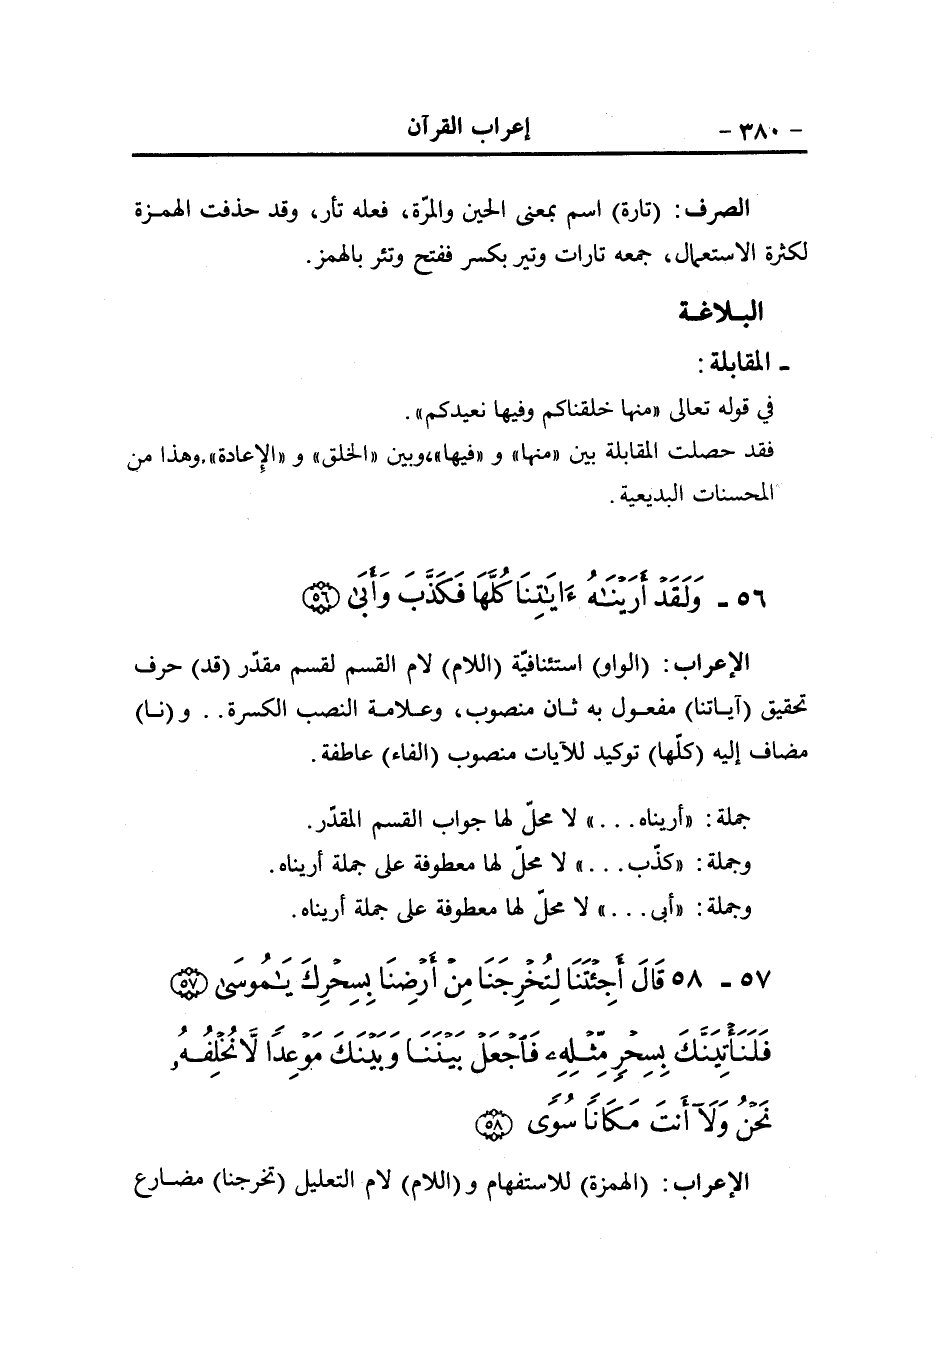 - ٣٨٠ - إعراب القرآن
الصرف: (تارة) اسم بمعنى الحين والمرّة، فعله تأر، وقد حذفت الهمزة
لكثرة الاستعمال، جمعه تارات وتير بكسر ففتح وتئر بالهمز.
البلاغة
ـ المقابلة:
في قوله تعالى «منها خلقناكم وفيها نعيدكم».
فقد حصلت المقابلة بين «منها» و «فيها»،وبين «الخلق» و «الإعادة».وهذا من
المحسنات البديعية.
٥٦ ـ وَلَقَدْ أَرَيْنَٰهُ ءَايَٰتِنَا كُلَّهَا فَكَذَّبَ وَأَبَىٰ (٥٦)
الإعراب: (الواو) استئنافيّة (اللام) لام القسم لقسم مقدّر (قد) حرف
تحقيق (آياتنا) مفعول به ثان منصوب، وعلامة النصب الكسرة.. و (نا)
مضاف إليه (كلّها) توكيد للآيات منصوب (الفاء) عاطفة.
جملة: «أريناه...» لا محلّ لها جواب القسم المقدّر.
وجملة: «كذّب...» لا محلّ لها معطوفة على جملة أريناه.
وجملة: «أبى...» لا محلّ لها معطوفة على جملة أريناه.
٥٧ ـ ٥٨ قَالَ أَجِئْتَنَا لِتُخْرِجَنَا مِنْ أَرْضِنَا بِسِحْرِكَ يَٰمُوسَىٰ (٥٧)
فَلَنَأْتِيَنَّكَ بِسِحْرٍ مِّثْلِهِۦ فَٱجْعَلْ بَيْنَنَا وَبَيْنَكَ مَوْعِدًا لَّا نُخْلِفُهُۥ
نَحْنُ وَلَآ أَنتَ مَكَانًا سُوًى (٥٨)
الإعراب: (الهمزة) للاستفهام و (اللام) لام التعليل (تخرجنا) مضارع